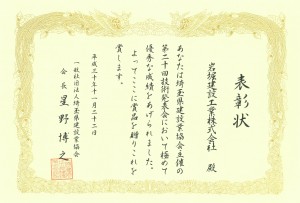 表彰状
岩堀建設工業株式会社 殿
あなたは埼玉県建設業協会主催の
第二十回技術発表会において極めて
優秀な成績をあげられました。
よってここに賞品を贈りこれを
賞します。
平成三十年十一月二十二日
一般社団法人埼玉県建設業協会
会長 星野博之